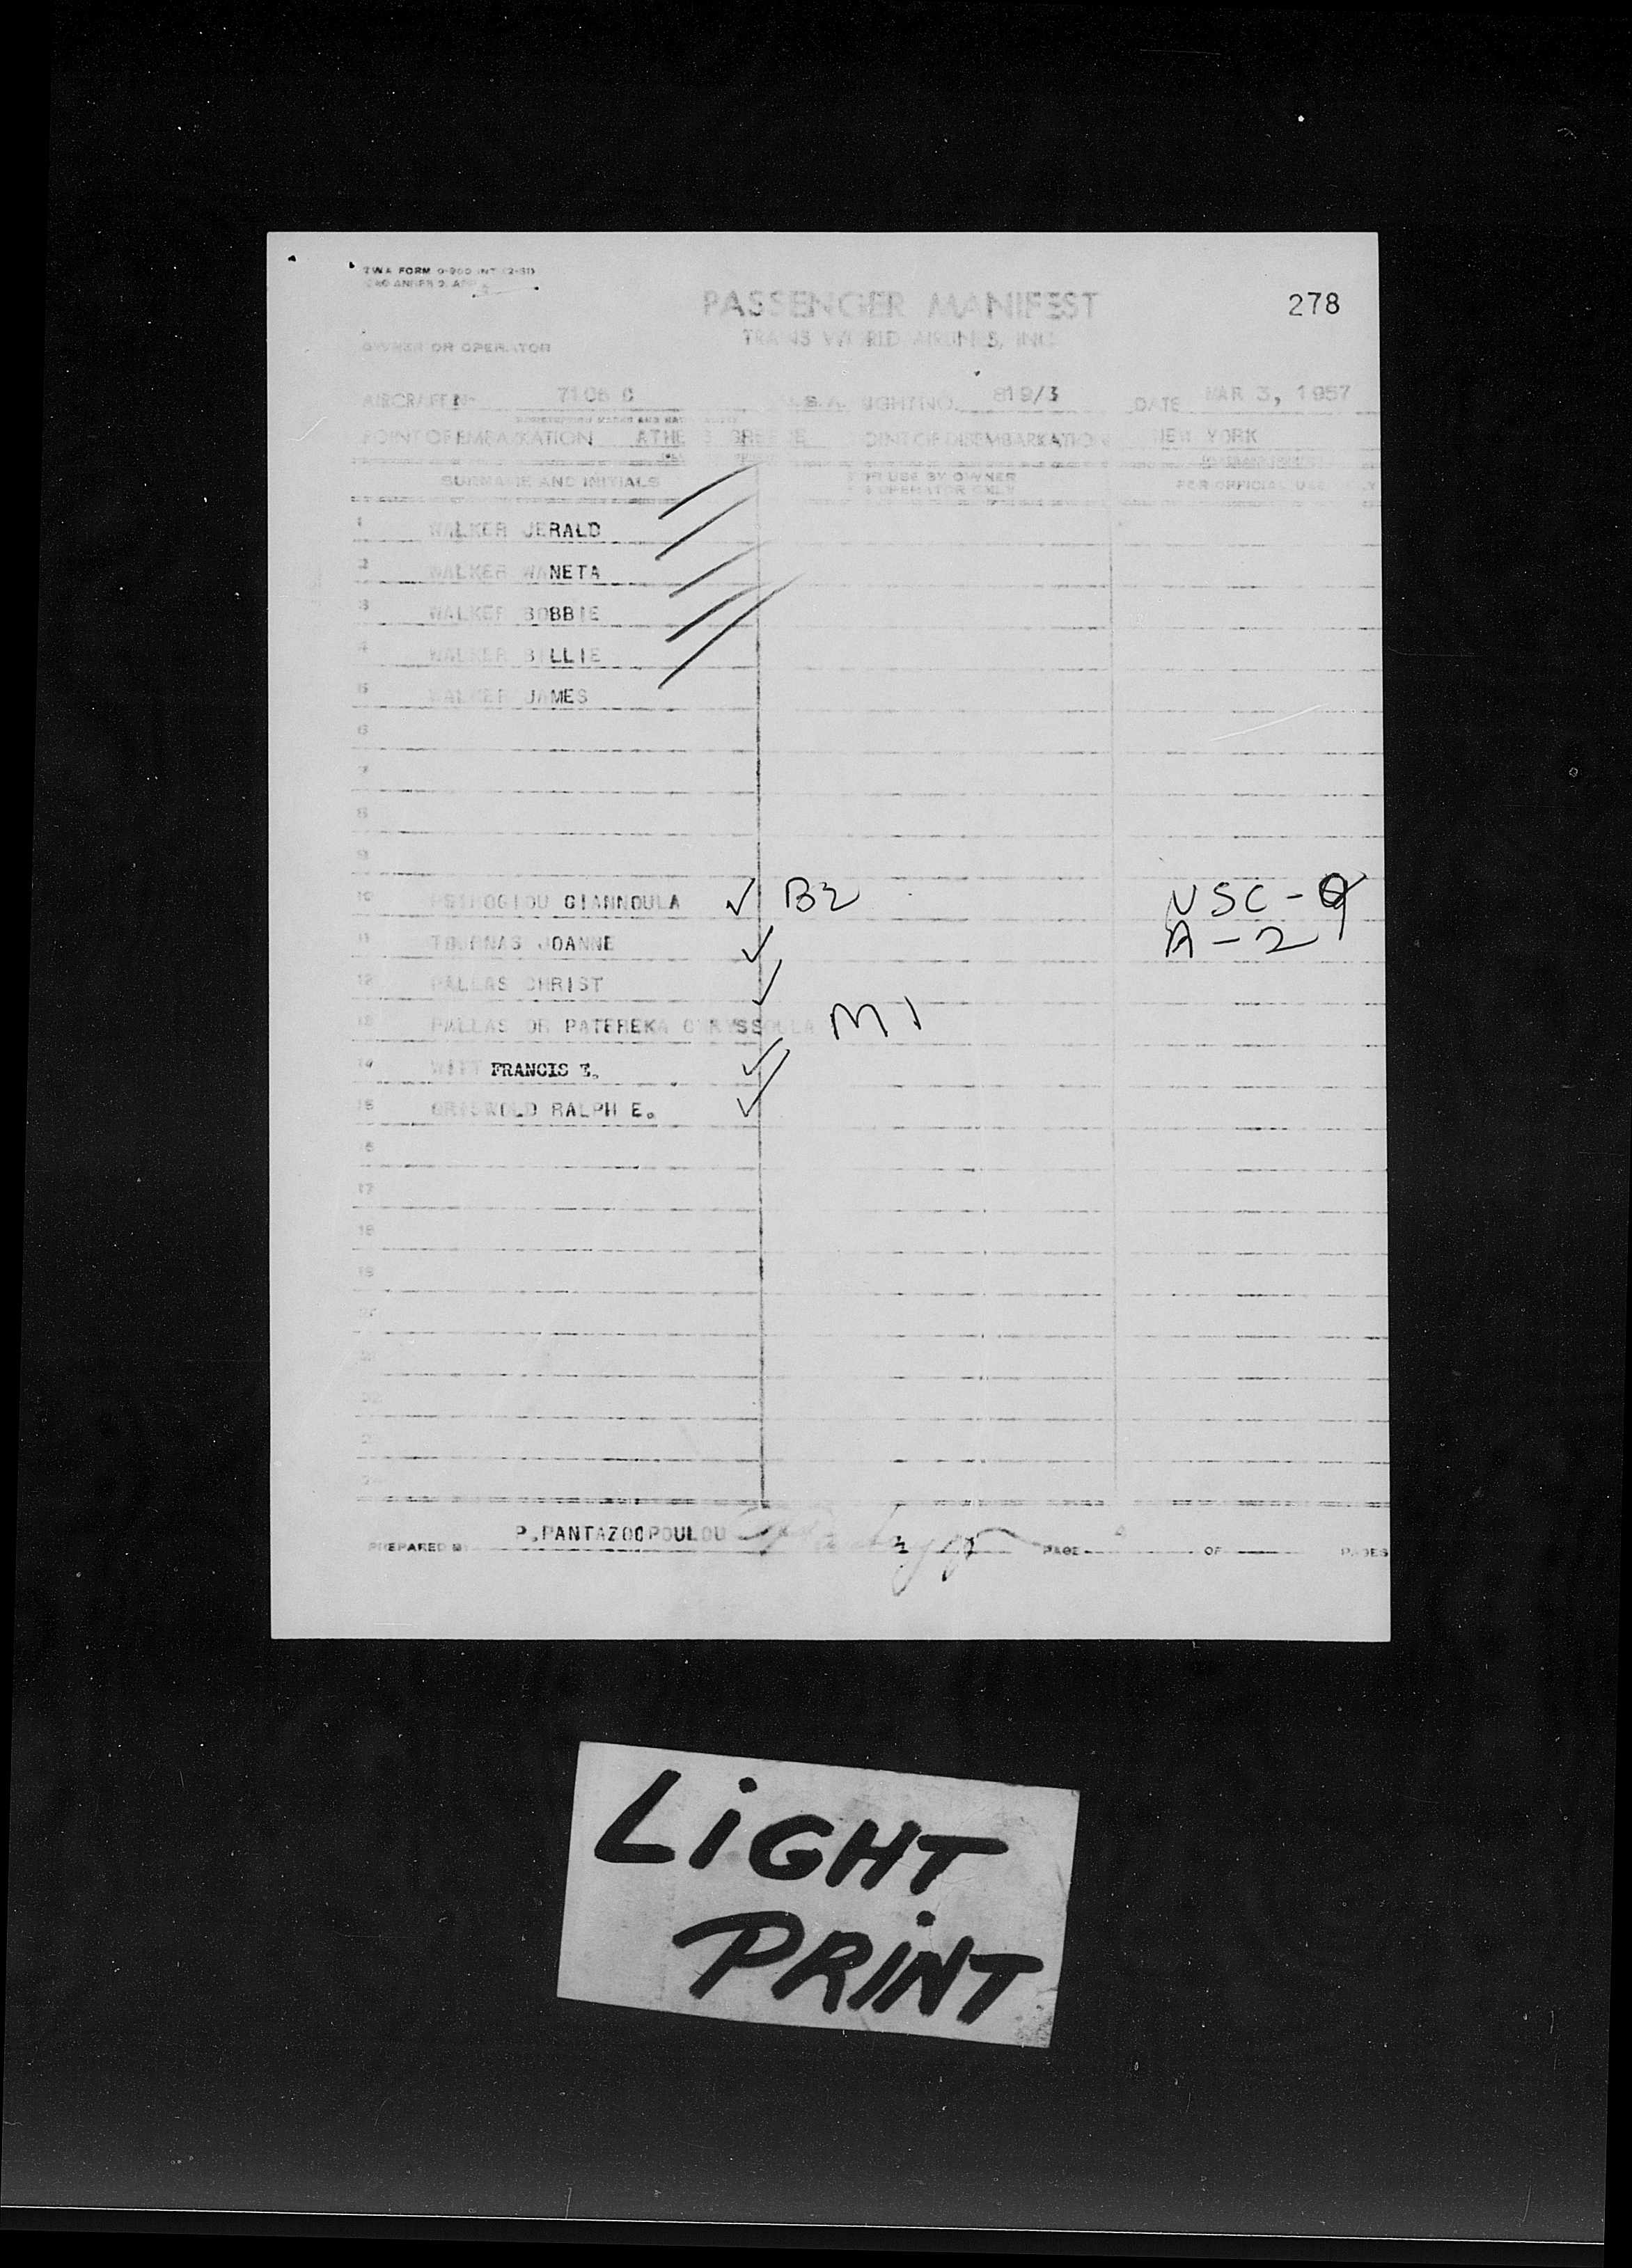 TWA FORM 0-960 INT (2-51)
278
PASSENGER MANIFEST
TRANS WORLD AIRLINES, INC.
OWNER OR OPERATOR
AIRCRAFT N 7106 C U.S.A. FLIGHT NO. 819/3 DATE MAR 3, 1957
POINT OF EMBARKATION ATHENS GREECE POINT OF DISEMBARKATION NEW YORK
SURNAME AND INITIALS FOR USE BY OWNER OR OPERATOR ONLY FOR OFFICIAL USE ONLY
1 WALKER JERALD
2 WALKER WANETA
3 WALKER BOBBIE
4 WALKER BILLIE
5 WALKER JAMES
6
7
8
9
10 GIANNOULA B2 USC-
11 JOANNE A-2
12 PALLAS CHRIST
13 PALLAS OR PATEREKA CHRYSSOULA M1
14 WITT FRANCIS E.
15 GRISWOLD RALPH E.
16
17
18
19
20
21
22
23
24
PREPARED BY P.PANTAZOOPOULOU PAGE OF PAGES
LiGHT
PRiNT